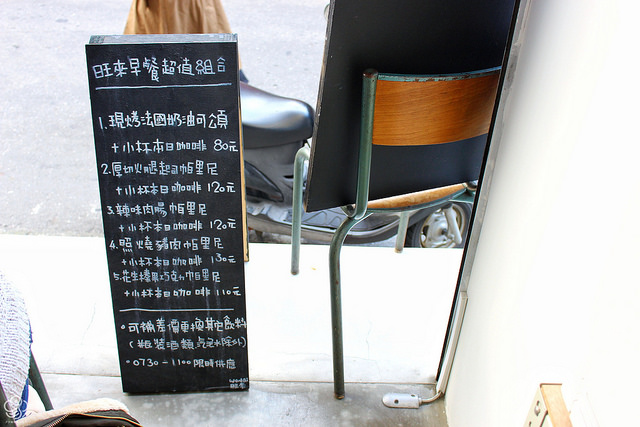 旺來早餐超值組合
1.現烤法國奶油可頌
+小杯本日咖啡 80元
2.厚切火腿起司帕里尼
+小杯本日咖啡 120元
3.辣味肉腸帕里尼
+小杯本日咖啡 120元
4.照燒豬肉帕里尼
+小杯本日咖啡 130元
5.花生榛果巧克力帕里尼
+小杯本日咖啡 110元
•可補差價更換其它飲料
(瓶裝酒類氣泡水除外)
•0730-1100限時供應